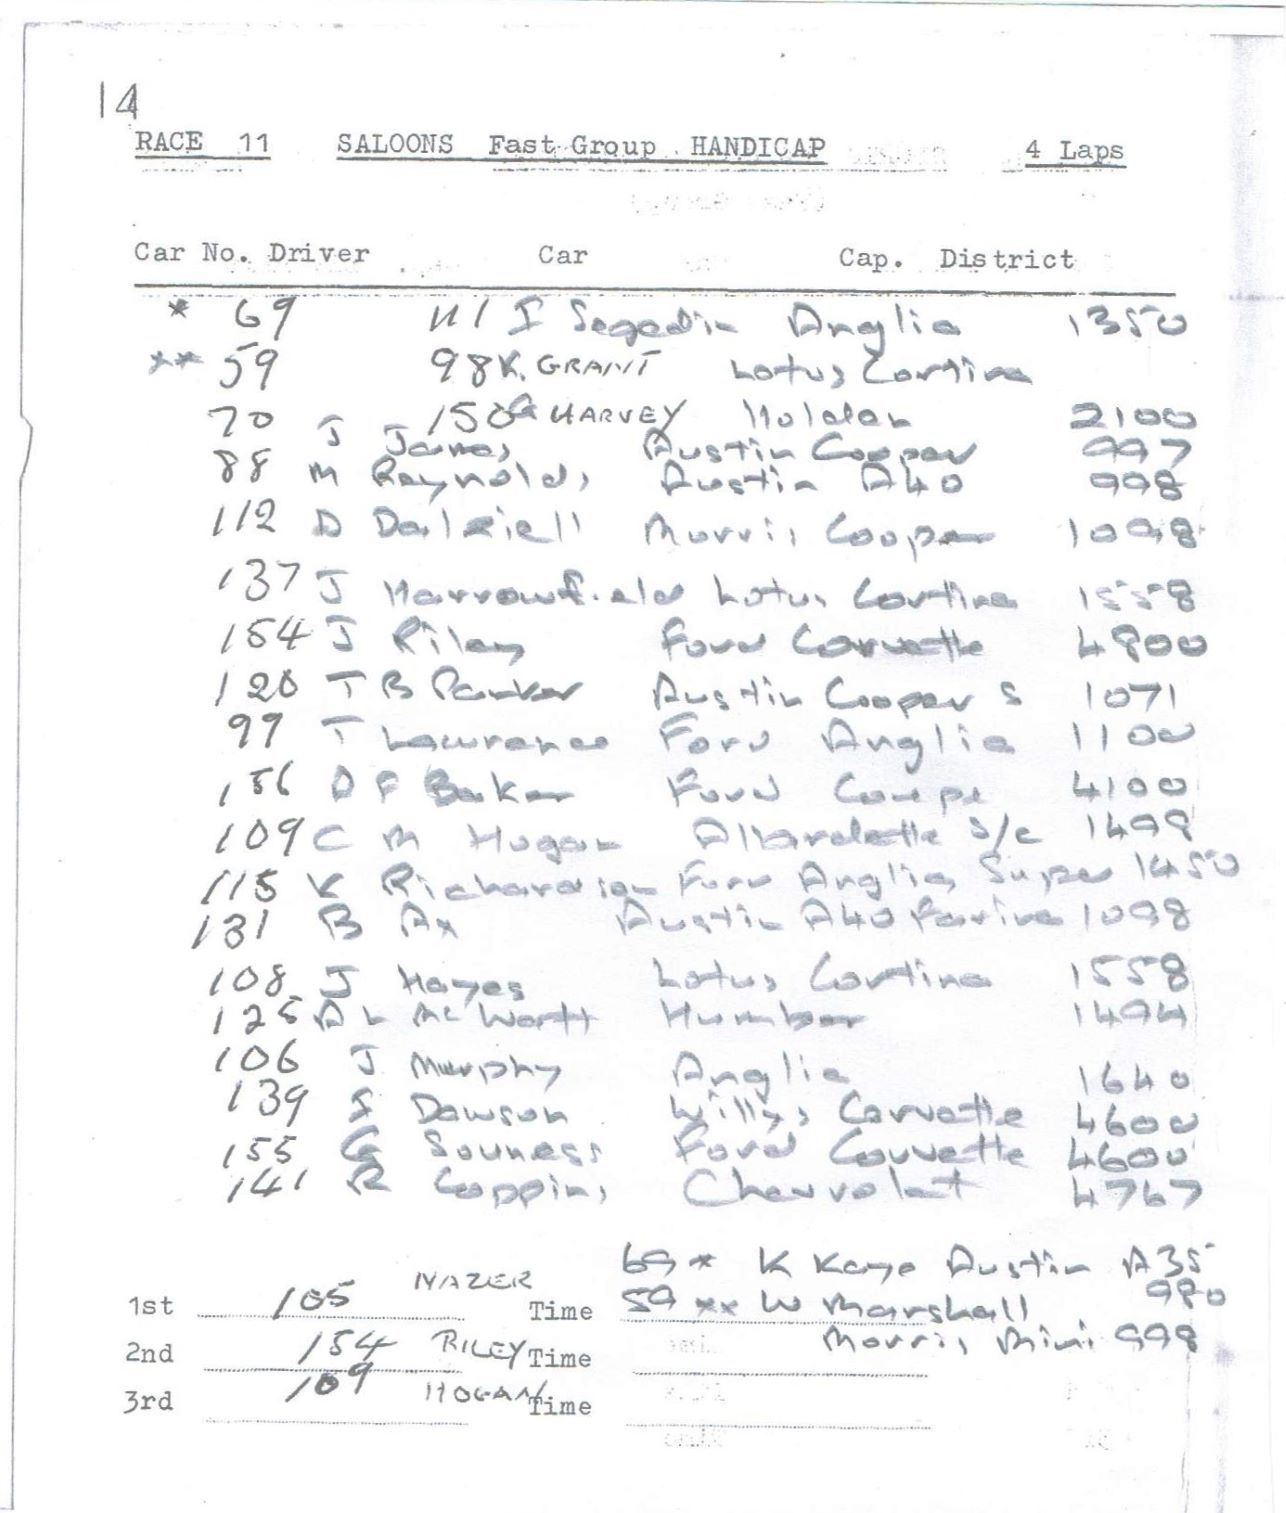 14
RACE 11 SALOONS Fast Group HANDICAP 4 Laps
Car No. Driver Car Cap. District
* 69 111 I Segedin Anglia 1350
** 59 98 K. GRANT Lotus Cortina
70 150 G HARVEY Holden 2100
J James Austin Cooper 997
88 M Reynolds Austin A40 998
112 D Dalziell Morris Cooper 1098
137 J Harrowfield Lotus Cortina 1558
154 J Riley Ford Corvette 4800
120 T B Parker Austin Cooper S 1071
99 T Lawrence Ford Anglia 1100
156 D F Baker Ford Coupe 4100
109 C M Hogan Allardette S/c 1498
115 K Richardson Ford Anglia Super 1450
131 B Ax Austin A40 Farina 1098
108 J Hayes Lotus Cortina 1558
125 A L McWatt Humber 1494
106 J Murphy Anglia 1640
139 S Dawson Willys Corvette 4600
155 G Souness Ford Corvette 4600
141 R Coppins Chevrolet 4767
69 * K Kaye Austin A35 980
1st 105 NAZER Time 59 ** W Marshall
Morris Mini 998
2nd 154 RILEY Time
3rd 109 HOGAN Time